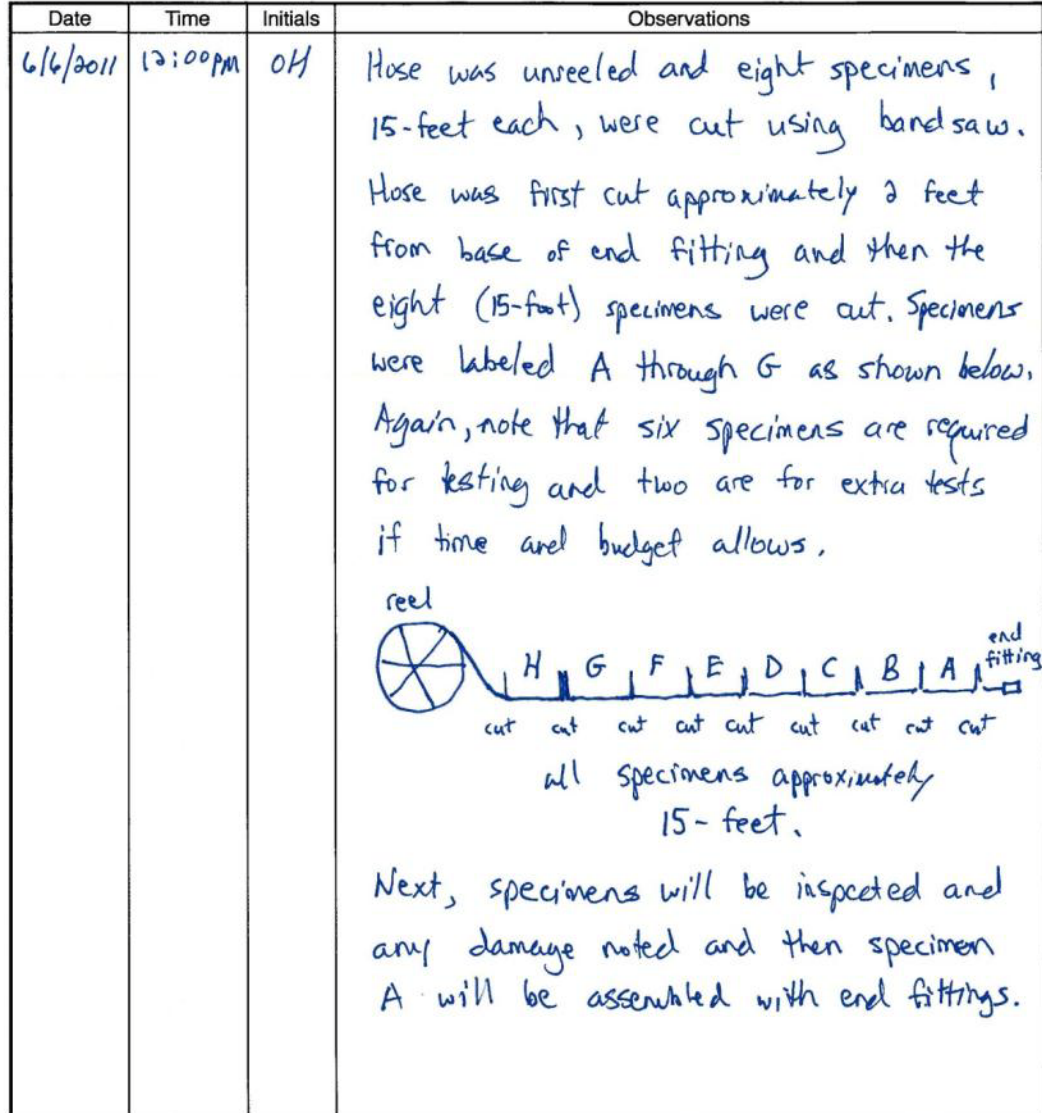 Date Time Initials Observations
6/6/2011 12:00PM OH Hose was unreeled and eight specimens,
15-feet each, were cut using bandsaw.
Hose was first cut approximately 2 feet
from base of end fitting and then the
eight (15-foot) specimens were cut. Specimens
were labeled A through G as shown below.
Again, note that six specimens are required
for testing and two are for extra tests
if time and budget allows.
reel
end
fitting
H G F E D C B A
cut cut cut cut cut cut cut cut cut
all specimens approximately
15-feet.
Next, specimens will be inspceted and
any damage noted and then specimen
A will be assembled with end fittings.